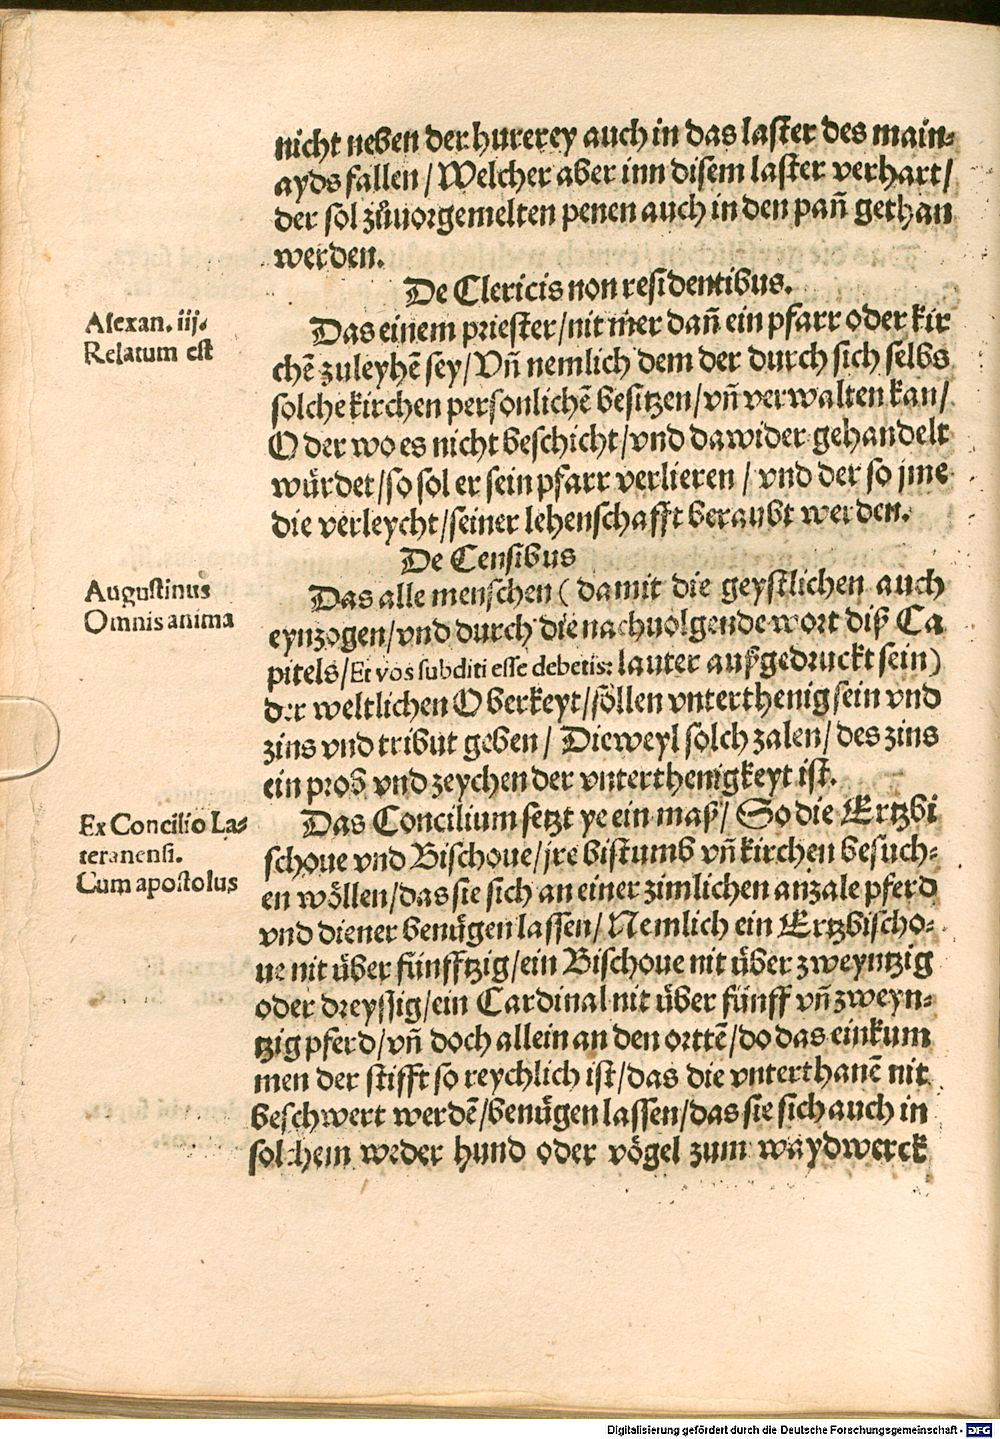 nicht neben der hurerey auch in das laster des main⸗
ayds fallen / Welcher aber inn disem laster verhart /
der sol zůuorgemelten penen auch in den pañ gethan
werden.
De Clericis non residentibus.
Alexan. iij.
Relatum est
Das einem priester / nit mer dañ ein pfarr oder kir
chē zuleyhē sey / Vñ nemlich dem der durch sich selbs
solche kirchen personlichē besitzen / vñ verwalten kan /
Oder wo es nicht beschicht / vnd dawider gehandelt
würdet / so sol er sein pfarr verlieren / vnd der so jme
die verleycht / seiner lehenschafft beraubt werden.
De Censibus
Augustinus
Omnis anima
Das alle menschen ( damit die geystlichen auch
eynzogen / vnd durch die nachuolgende wort diß Ca
pitels / Et vos subditi esse debetis: lauter außgedruckt sein )
der weltlichen Oberkeyt / söllen vnterthenig sein vnd
zins vnd tribut geben / Dieweyl solch zalen / des zins
ein prob vnd zeychen der vnterthenigkeyt ist.
Ex Concilio La⸗
teranensi.
Cum apostolus
Das Concilium setzt ye ein maß / So die Ertzbi
schoue vnd Bischoue / jre bistumb vñ kirchen besuch⸗
en wöllen / das sie sich an einer zimlichen anzale pferd
vnd diener benügen lassen / Nemlich ein Ertzbischo⸗
ue nit über fünfftzig / ein Bischoue nit über zweyntzig
oder dreyssig / ein Cardinal nit über fünff vñ zweyn⸗
tzig pferd / vñ doch allein an den orttē / do das einkum
men der stifft so reychlich ist / das die vnterthanē nit
beschwert werdē / benügen lassen / das sie sich auch in
solchem weder hund oder vögel zum waydwerck
Digitalisierung gefördert durch die Deutsche Forschungsgemeinschaft - DFG